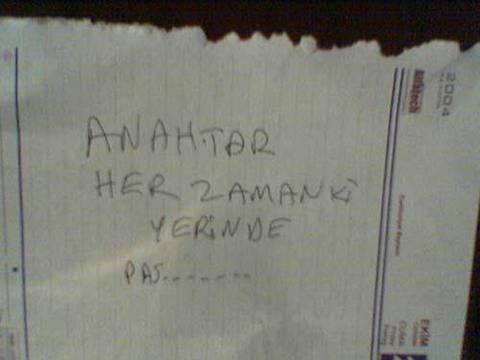 ANAHTAR
HER ZAMANKİ
YERİNDE
PAS.......
2004
EKİM